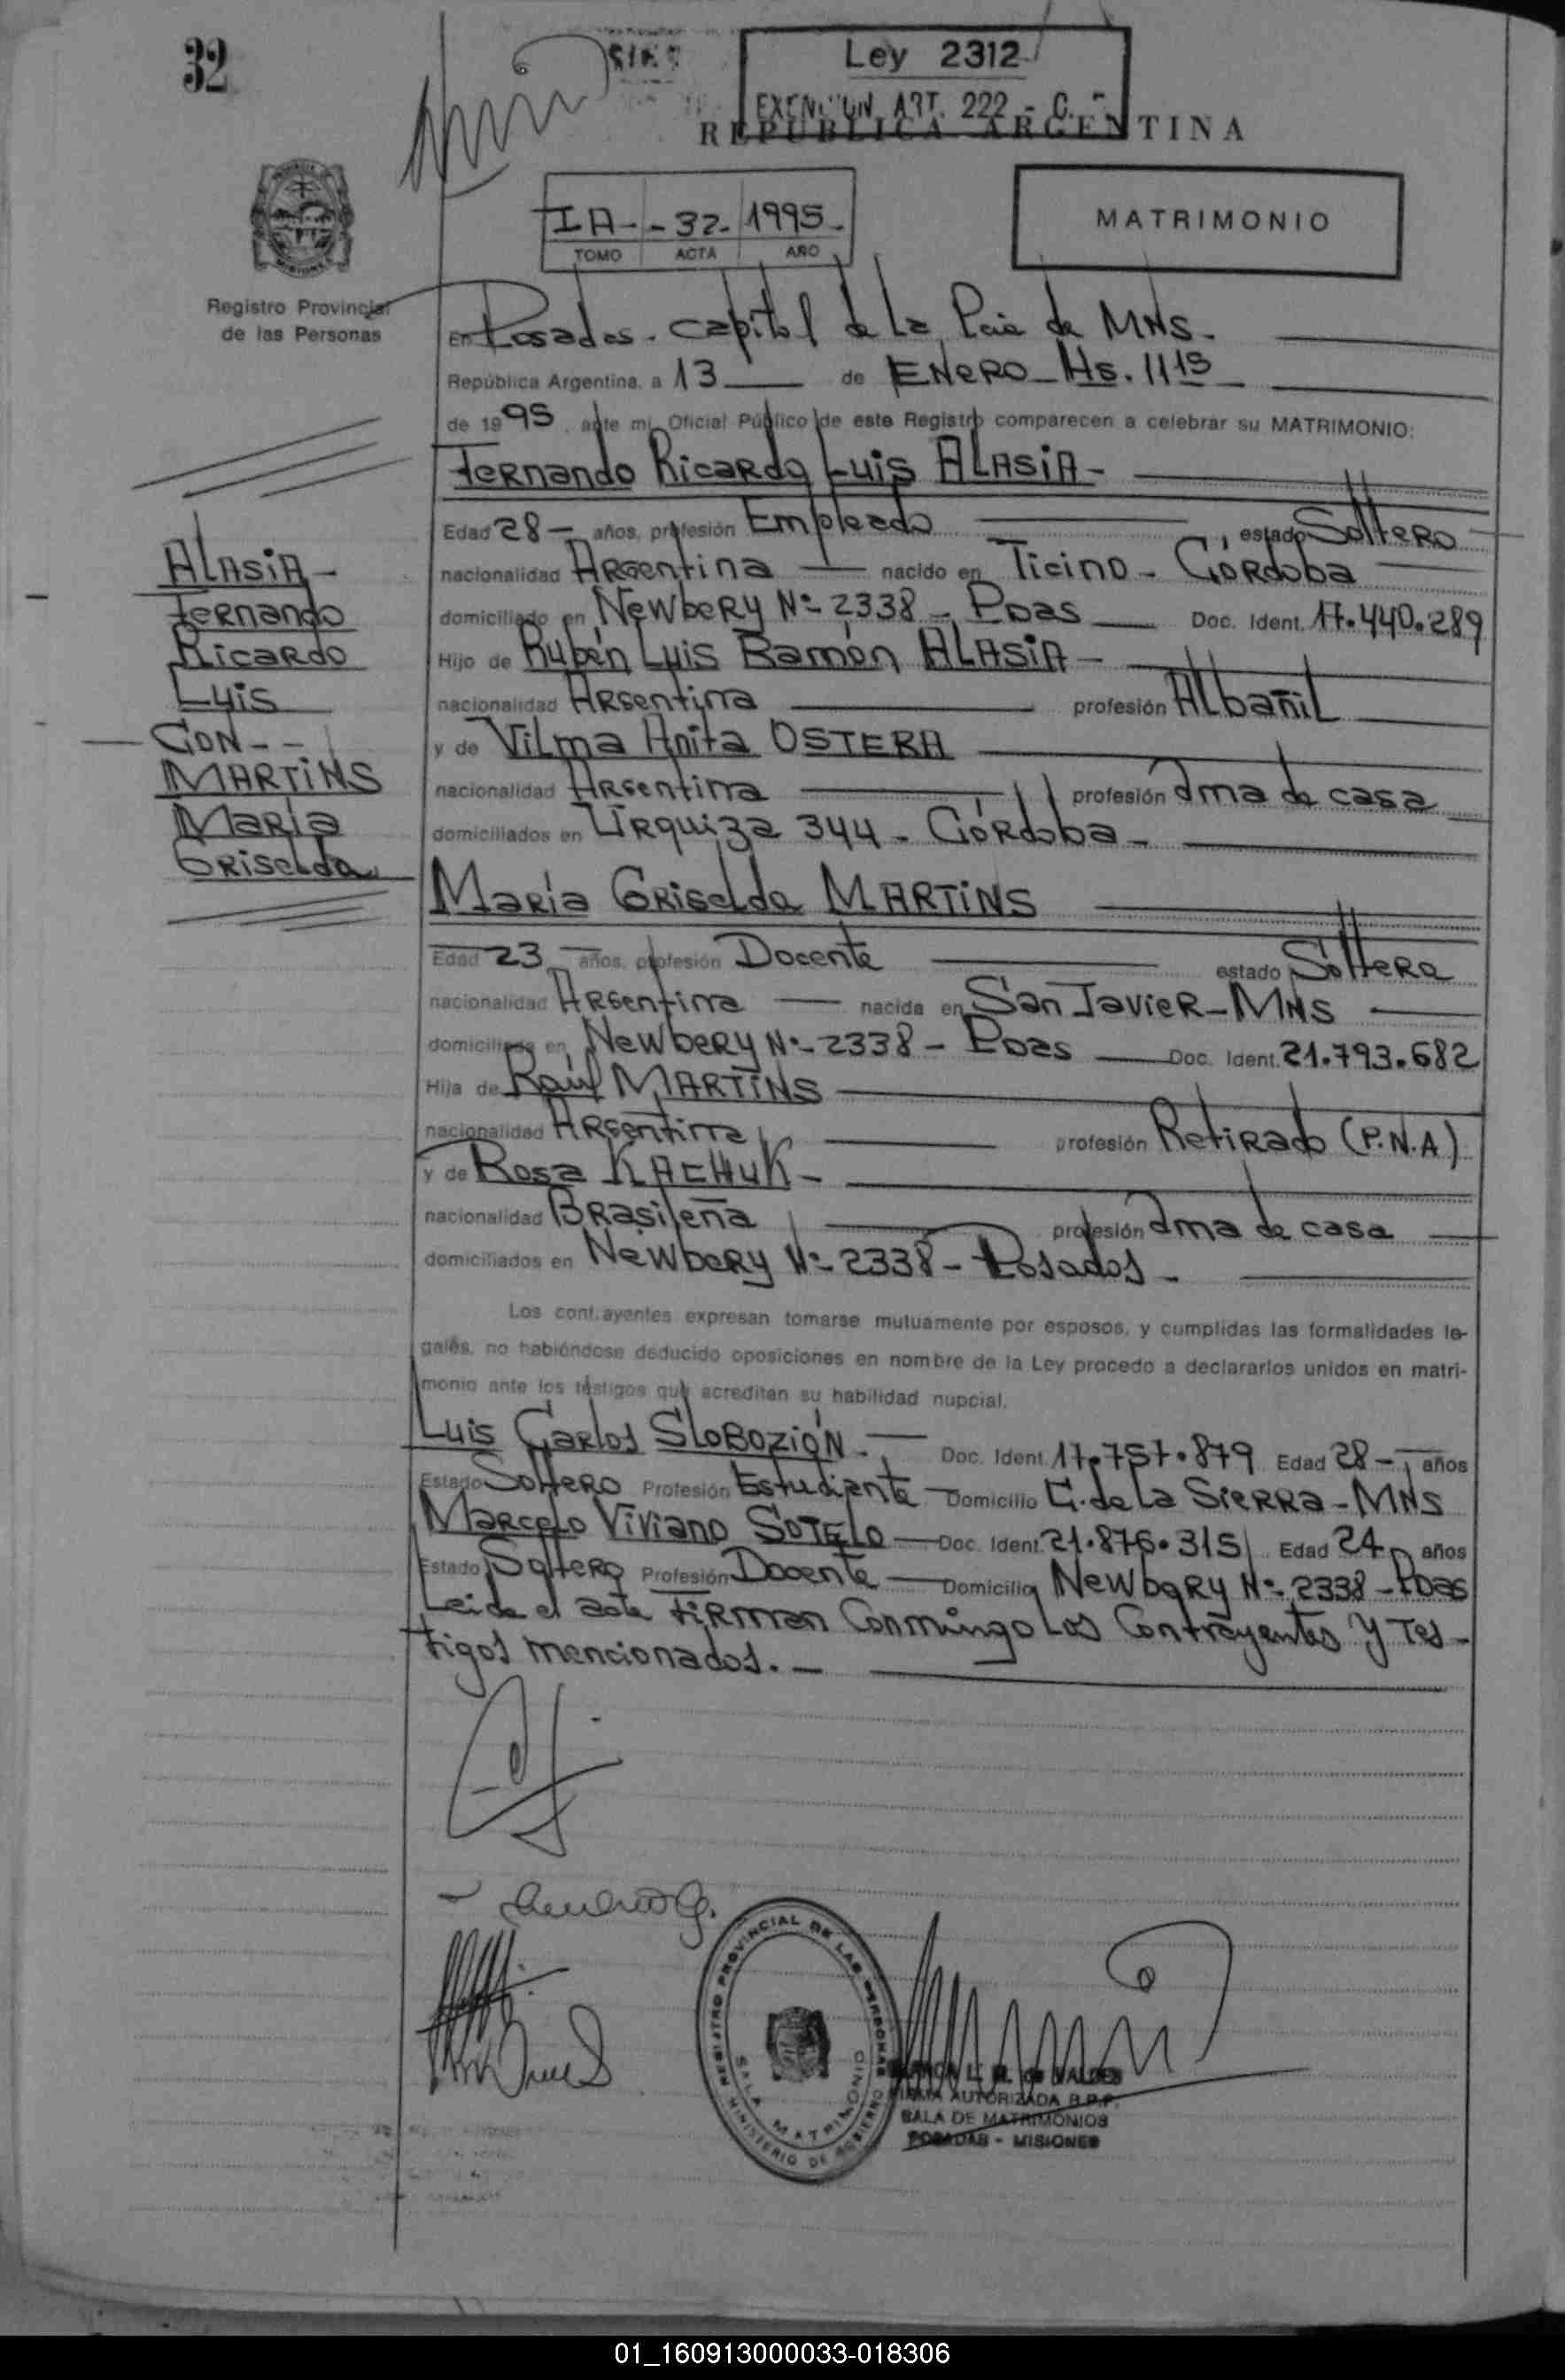 32
Ley 2312
EXENCION ART. 222 - C.
REPUBLICA ARGENTINA
IA - - 32 - 1995 -
TOMO ACTA AÑO
MATRIMONIO
Registro Provincial
de las Personas
En Posadas - Capital de La Pcia de MNS -
República Argentina, a 13 de ENERO - Hs. 1115
de 1995, ante mi, Oficial Público de este Registro comparecen a celebrar su MATRIMONIO:
Fernando Ricardo Luis ALASIA -
Edad 28 - años, profesión Empleado estado Soltero
nacionalidad Argentina nacido en Ticino - Córdoba
domiciliado en Newbery Nº 2338 - Pdas Doc. Ident. 17.440.289
Hijo de Rubén Luis Ramón ALASIA -
nacionalidad Argentina profesión Albañil
y de Vilma Anita OSTERA
nacionalidad Argentina profesión ama de casa
domiciliados en Urquiza 344 - Córdoba -
ALASIA -
Fernando
Ricardo
Luis
CON - -
MARTINS
María
Griselda
María Griselda MARTINS
Edad 23 años, profesión Docente estado Soltera
nacionalidad Argentina nacida en San Javier - MNS
domiciliada en Newbery Nº 2338 - Pdas Doc. Ident. 21.793.682
Hija de Raúl MARTINS
nacionalidad Argentina profesión Retirado (P.N.A)
y de Rosa KACHUK -
nacionalidad Brasileña profesión ama de casa
domiciliados en Newbery Nº 2338 - Posadas -
Los contrayentes expresan tomarse mutuamente por esposos, y cumplidas las formalidades le-
gales, no habiéndose deducido oposiciones en nombre de la Ley procedo a declararlos unidos en matri-
monio ante los testigos que acreditan su habilidad nupcial.
Luis Carlos SLOBOZIÓN. - Doc. Ident. 17.757.879 Edad 28 - años
Estado Soltero Profesión Estudiante Domicilio G. de La Sierra - MNS
Marcelo Viviano SOTELO - Doc. Ident. 21.876.315 Edad 24 años
Estado Soltero Profesión Docente Domicilio Newbery Nº 2338 - Pdas
Leida el acta Firman Conmingo Los Contrayentes y Tes-
tigos mencionados. -
REGISTRO PROVINCIAL DE LAS PERSONAS
SALA MATRIMONIO
MINISTERIO DE GOBIERNO
FIRMA AUTORIZADA R.P.P.
SALA DE MATRIMONIOS
POSADAS - MISIONES
01_160913000033-018306